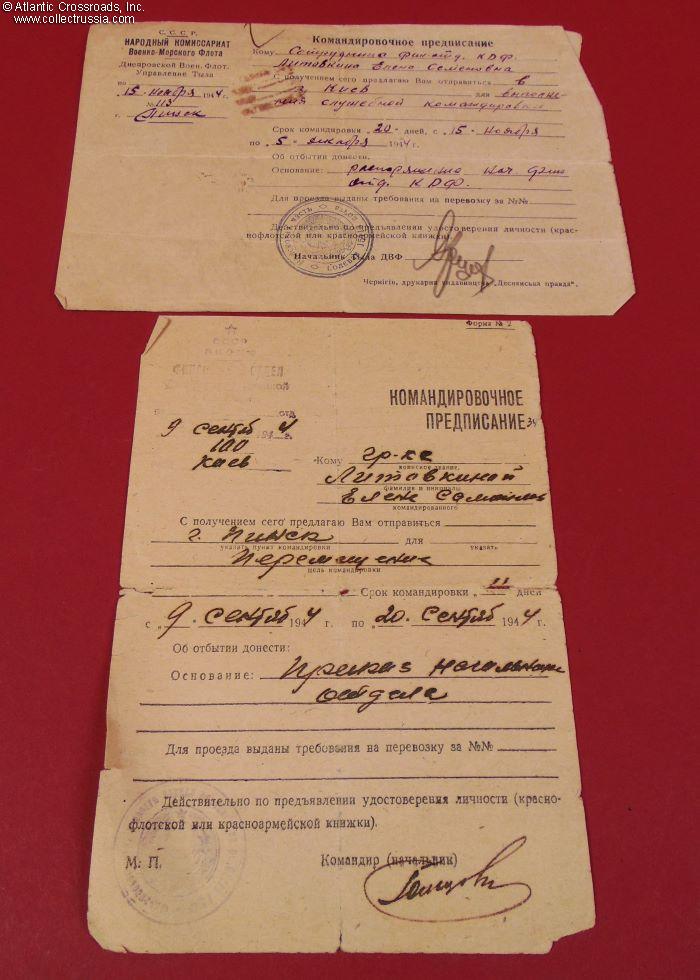 © Atlantic Crossroads, Inc.
www.collectrussia.com
С. С. С. Р.
НАРОДНЫЙ КОМИССАРИАТ
Военно-Морского Флота
Днепровской Воен. Флот.
Управление Тыла
15 Ноября 1944 г.
№ 113
г. Пинск
Командировочное предписание
Кому Сотрудница финотд. КДФ
Литовкина Елена Семеновна
С получением сего предлагаю Вам отправиться в
г. Киев для выполне-
ния служебной командировки
Срок командировки 20 дней, с 15 Ноября
по 5 декабря 1944 г.
Об отбытии донести.
Основание: распоряжение нач. фин
отд. КДФ.
Для проезда выданы требования на перевозку за №№
Действительно по предъявлении удостоверения личности (крас-
нофлотской или красноармейской книжки)
Начальник Тыла ДВФ
Чернігів, друкарня видавництва „Деснянська правда".
Форма № 2
СССР
НКВМФ
ОТДЕЛ
отд.
9 сентяб 1944 г.
100
Киев
КОМАНДИРОВОЧНОЕ
ПРЕДПИСАНИЕ
Кому гр-ке
воинское звание,
Литовкиной
фамилия и инициалы
Елен
командированного
С получением сего предлагаю Вам отправиться
г. Пинск для
указать пункт командировки указать
цель командировки
Срок командировки „11" дней
с „9. сентяб 1944 г. по „20. сентяб 1944 г.
Об отбытии донести:
Основание: Приказ начальника
отдела
Для проезда выданы требования на перевозку за №№
Действительно по предъявлении удостоверения личности (красно-
флотской или красноармейской книжки).
М. П. Командир (начальник)